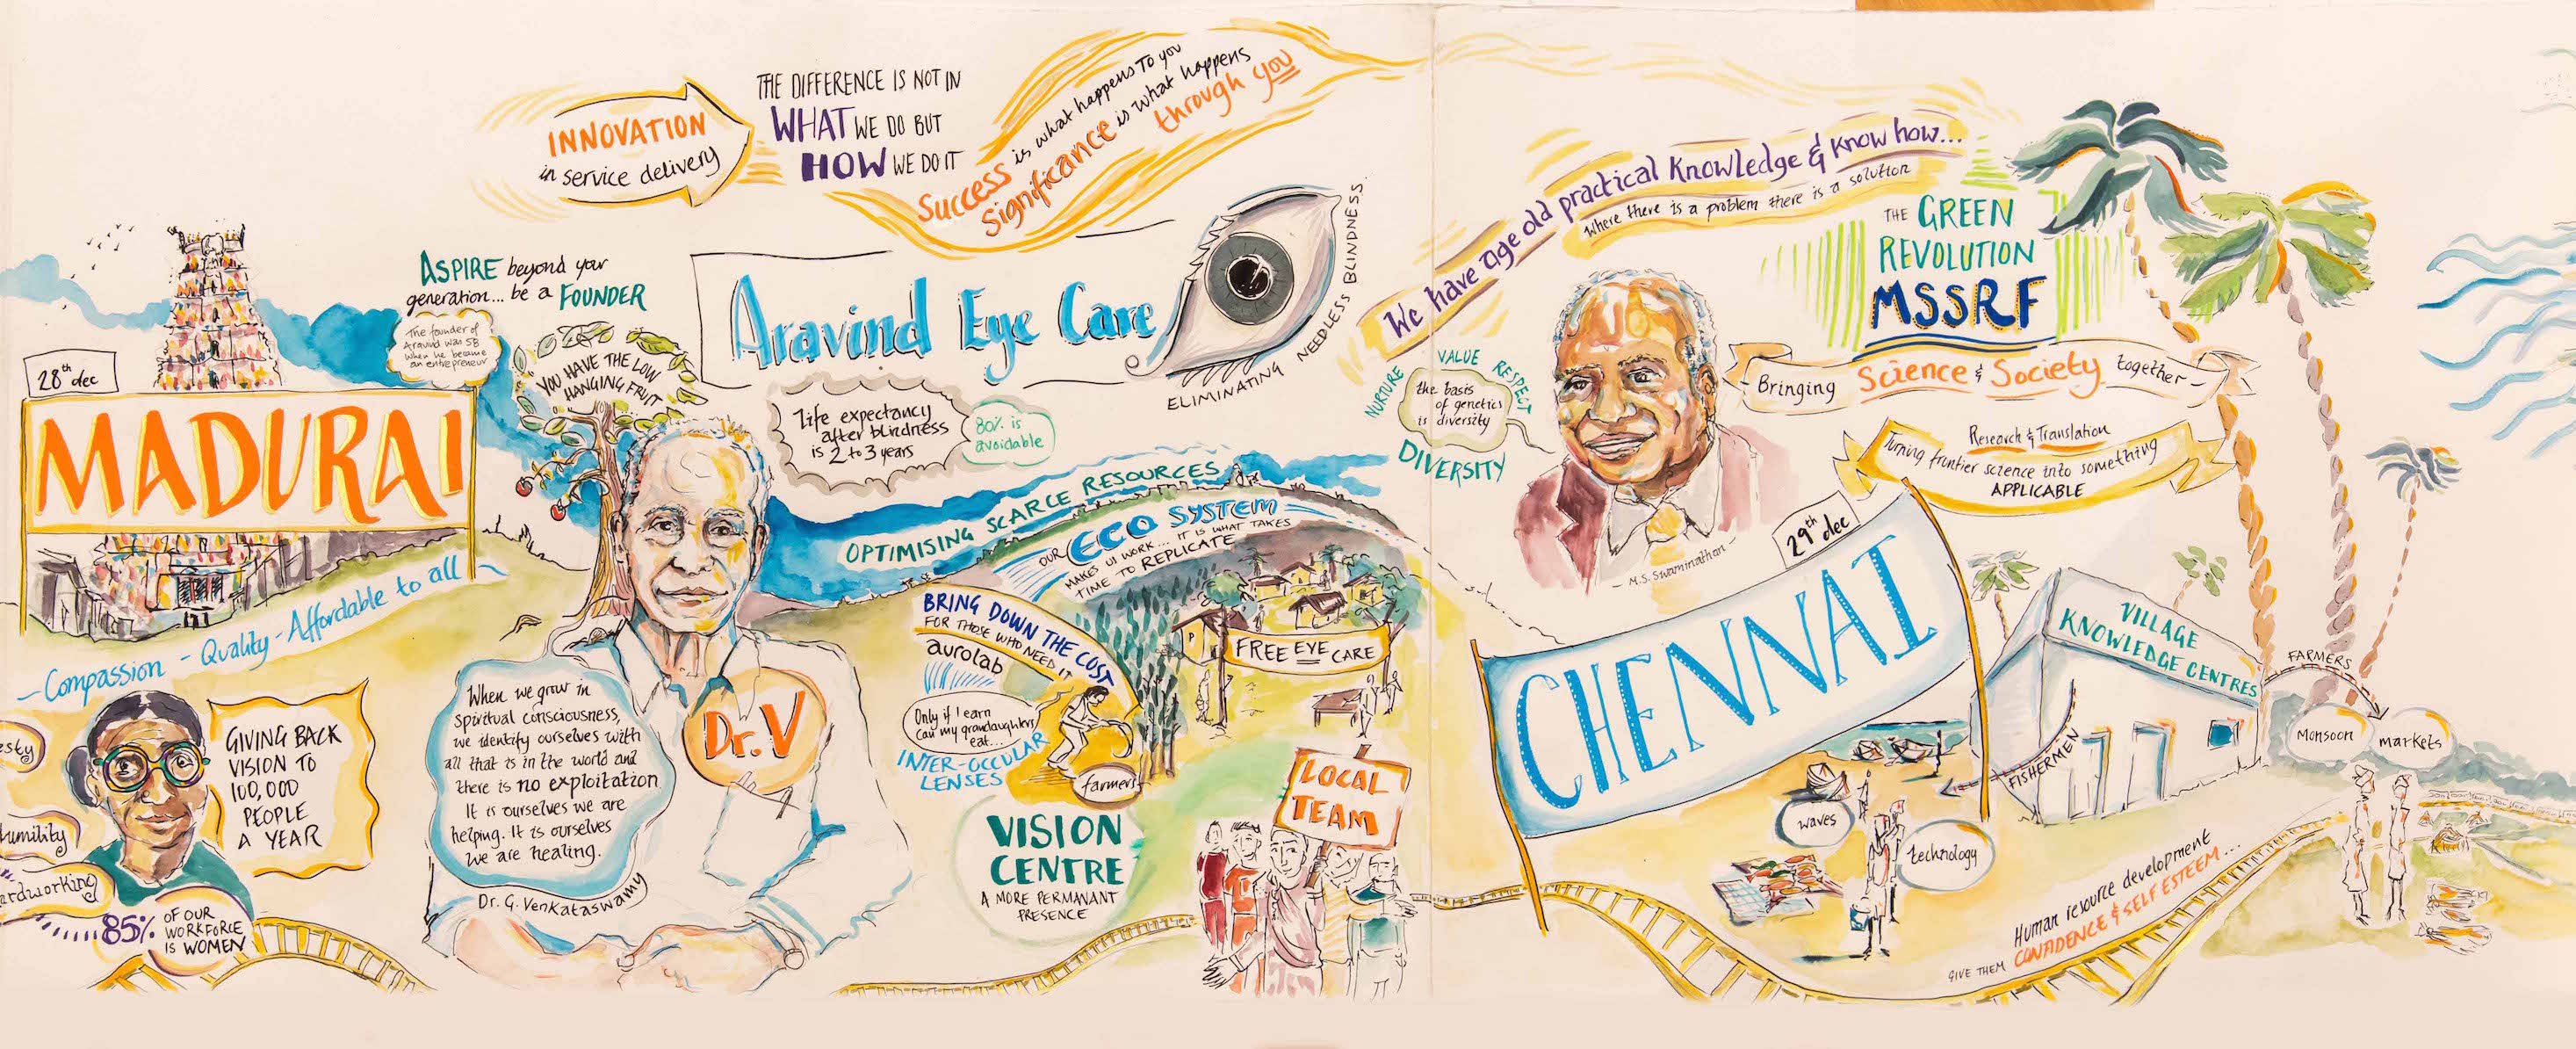 28th dec
MADURAI
Compassion - Quality - Affordable to all
humility
GIVING BACK
VISION TO
100,000
PEOPLE
A YEAR
85% OF OUR
WORKFORCE
IS WOMEN
ASPIRE beyond your
generation... be a FOUNDER
The founder of
Aravind was 58
when he became
an entrepreneur
YOU HAVE THE LOW
HANGING FRUIT
When we grow in
spiritual consciousness,
we identify ourselves with
all that is in the world and
there is no exploitation.
It is ourselves we are
helping. It is ourselves
we are healing.
Dr. G. Venkataswamy
Dr. V
INNOVATION
in service delivery
THE DIFFERENCE IS NOT IN
WHAT WE DO BUT
HOW WE DO IT
Success is what happens to you
Significance is what happens
through you
Aravind Eye Care
ELIMINATING NEEDLESS BLINDNESS.
Life expectancy
after blindness
is 2 to 3 years
80% is
avoidable
OPTIMISING SCARCE RESOURCES
OUR ECO SYSTEM
MAKES US WORK... IT IS WHAT TAKES
TIME TO REPLICATE
BRING DOWN THE COST
FOR THOSE WHO NEED IT
aurolab
Only if I earn
can my grandaughters
eat...
INTER-OCCULAR
LENSES
farmers
FREE EYE CARE
VISION
CENTRE
A MORE PERMANANT
PRESENCE
LOCAL
TEAM
We have age old practical knowledge & know how...
where there is a problem there is a solution
NURTURE
VALUE
RESPECT
the basis
of genetics
is diversity
DIVERSITY
M.S. Swaminathan
THE GREEN
REVOLUTION
MSSRF
Bringing Science & Society together
Research & Translation
Turning frontier science into something
APPLICABLE
29th dec
CHENNAI
VILLAGE
KNOWLEDGE CENTRES
FARMERS
Monsoon
markets
FISHERMEN
waves
technology
Human resource development
GIVE THEM CONFIDENCE & SELF ESTEEM...